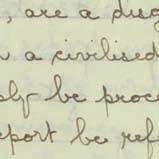 , are a disg
n a civilised
ly be proce
eport be ref